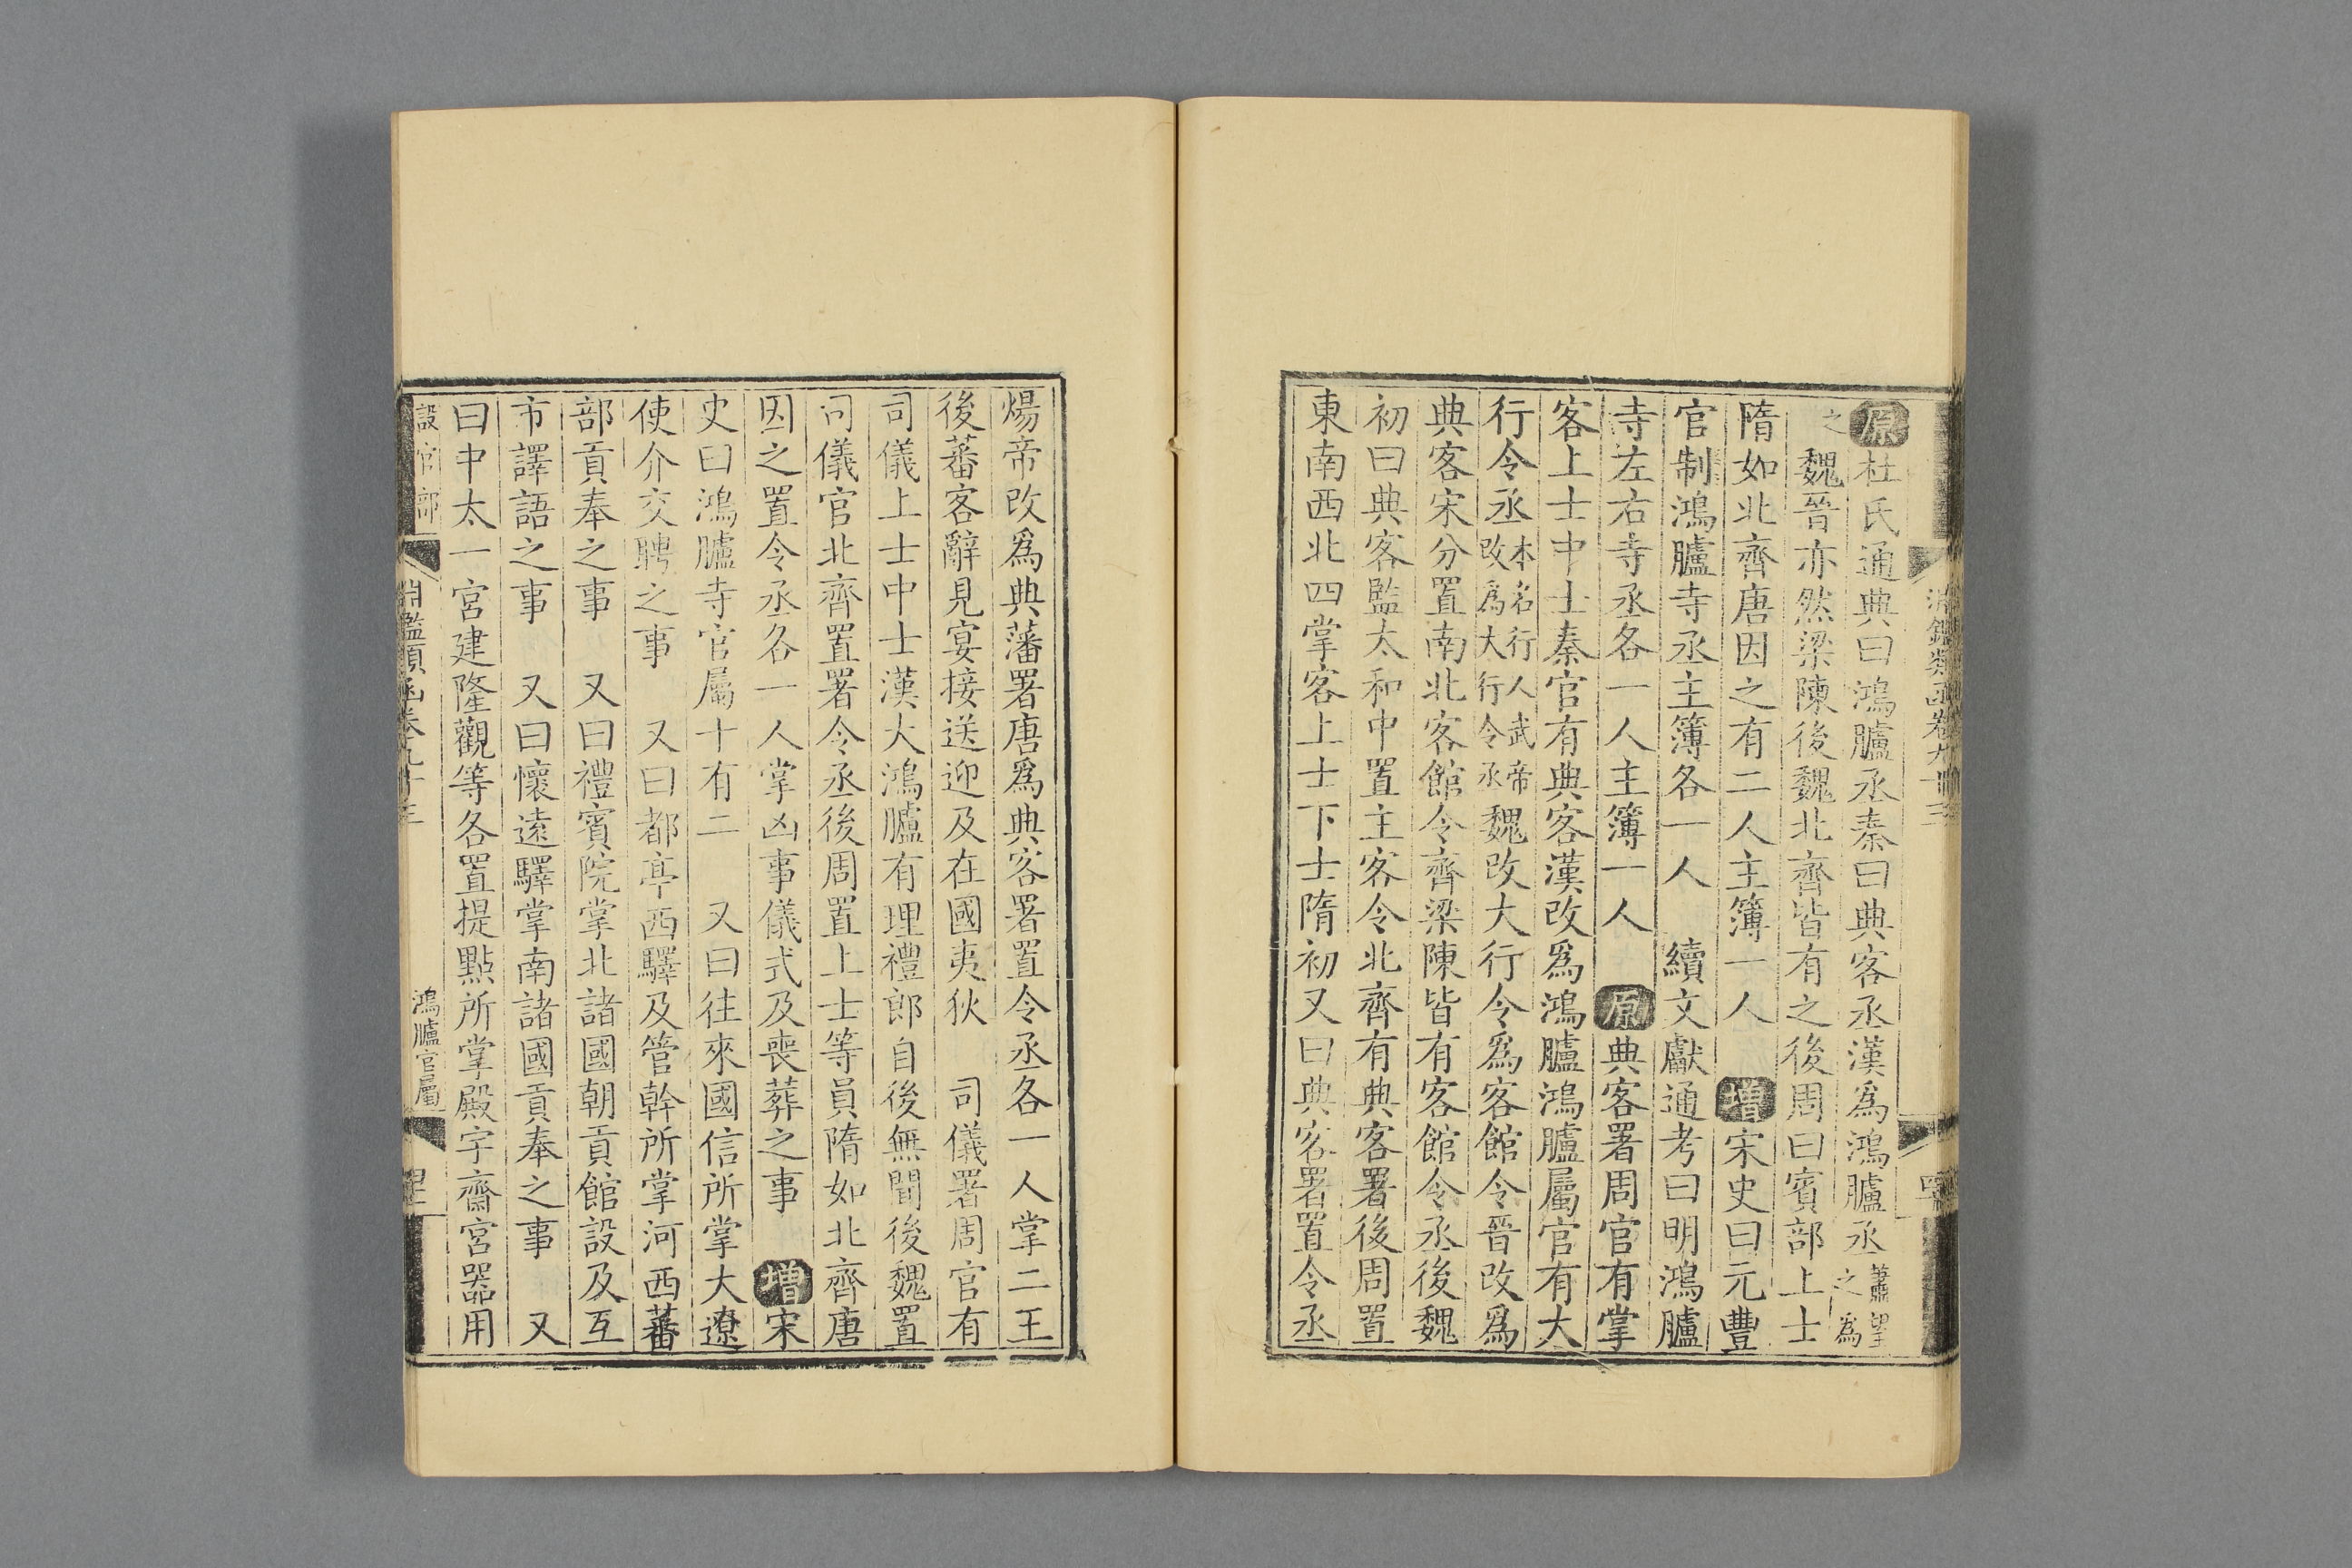 原杜氏通典曰鴻臚丞秦曰典客丞漢爲鴻臚丞蕭望之爲
之魏晉亦然梁陳後魏北齊皆有之後周曰賓部上士
隋如北齊唐因之有二人主簿一人　增宋史曰元豐
官制鴻臚寺丞主簿各一人　續文獻通考曰明鴻臚
寺左右寺丞各一人主簿一人　原典客署周官有掌
客上士中士秦官有典客漢改爲鴻臚鴻臚屬官有大
行令丞本名行人武帝改爲大行令丞魏改大行令爲客館令晉改爲
典客宋分置南北客館令齊梁陳皆有客館令丞後魏
初曰典客監太和中置主客令北齊有典客署後周置
東南西北四掌客上士下士隋初又曰典客署置令丞
煬帝改爲典藩署唐爲典客署置令丞各一人掌二王
後蕃客辭見宴接送迎及在國夷狄　司儀署周官有
司儀上士中士漢大鴻臚有理禮郎自後無聞後魏置
司儀官北齊置署令丞後周置上士等員隋如北齊唐
因之置令丞各一人掌凶事儀式及喪葬之事　增宋
史曰鴻臚寺官屬十有二　又曰往來國信所掌大遼
使介交聘之事　又曰都亭西驛及管幹所掌河西蕃
部貢奉之事　又曰禮賓院掌北諸國朝貢館設及互
市譯語之事　又曰懷遠驛掌南諸國貢奉之事　又
曰中太一宮建隆觀等各置提點所掌殿宇齋宮器用
設官部　淵鑑類函卷九十三　鴻臚官屬